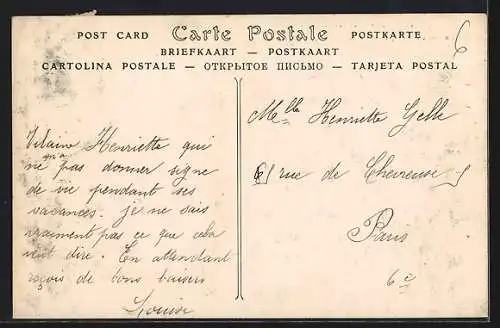 POST CARD Carte Postale POSTKARTE
BRIEFKAART — POSTKAART
CARTOLINA POSTALE — ОТКРЫТОЕ ПИСЬМО — TARJETA POSTAL
6
Vilaine Henriette qui
ne m'a pas donner signe
de vie pendant ses
vacances. je ne sais
vraiment pas ce que cela
veut dire. En attendant
reçois de bons baisers
Louise
Melle Henriette Gelle
61 rue de Chevreuse
Paris
6e